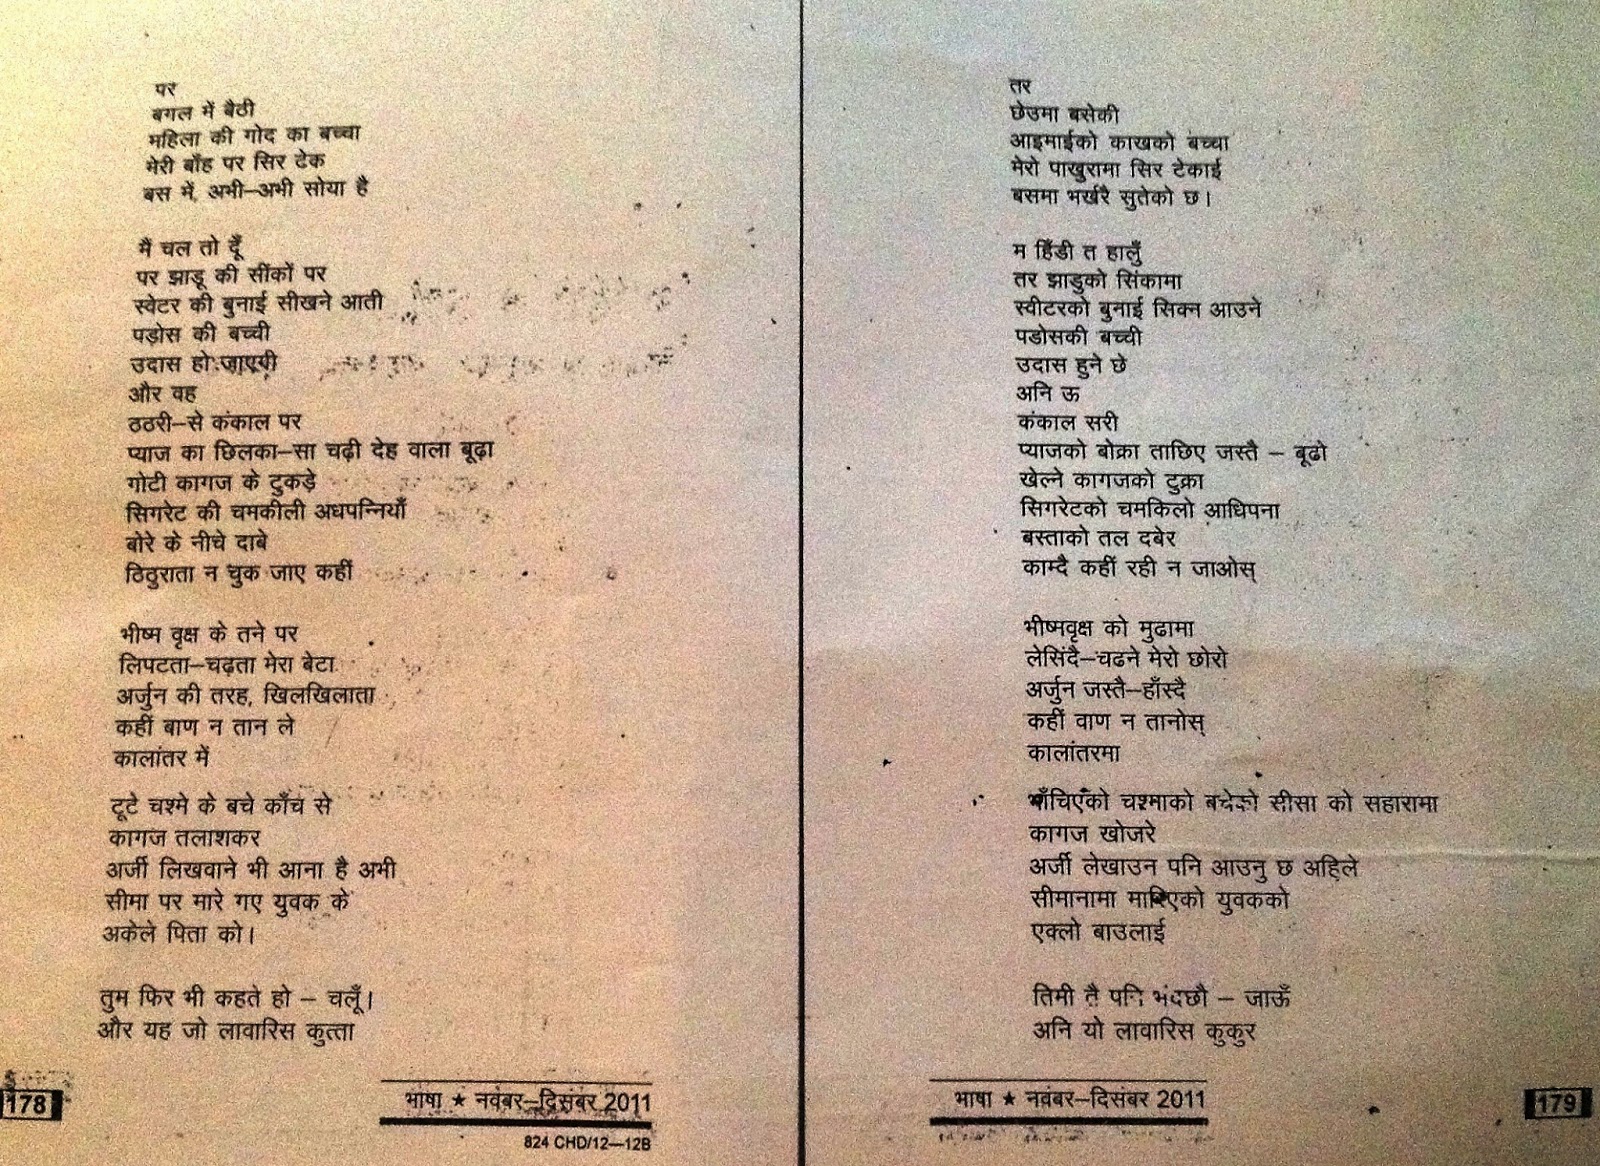 पर
बगल में बैठी
महिला की गोद का बच्चा
मेरी बाँह पर सिर टेक
बस में, अभी–अभी सोया है
मैं चल तो दूँ
पर झाडू की सींकों पर
स्वेटर की बुनाई सीखने आती
पड़ोस की बच्ची
उदास हो जाएगी
और वह
ठठरी–से कंकाल पर
प्याज का छिलका–सा चढ़ी देह वाला बूढ़ा
गोटी कागज के टुकड़े
सिगरेट की चमकीली अधपन्नियाँ
बोरे के नीचे दाबे
ठिठुराता न चुक जाए कहीं
भीष्म वृक्ष के तने पर
लिपटता–चढ़ता मेरा बेटा
अर्जुन की तरह, खिलखिलाता
कहीं बाण न तान ले
कालांतर में
टूटे चश्मे के बचे काँच से
कागज तलाशकर
अर्जी लिखवाने भी आना है अभी
सीमा पर मारे गए युवक के
अकेले पिता को।
तुम फिर भी कहते हो – चलूँ।
और यह जो लावारिस कुत्ता
178
भाषा ★ नवंबर–दिसंबर 2011
824 CHD/12—12B
तर
छेउमा बसेकी
आइमाईको काखको बच्चा
मेरो पाखुरामा सिर टेकाई
बसमा भर्खरै सुतेको छ।
म हिंडी त हालुँ
तर झाडुको सिंकामा
स्वीटरको बुनाई सिक्न आउने
पडोसकी बच्ची
उदास हुने छे
अनि ऊ
कंकाल सरी
प्याजको बोक्रा ताछिए जस्तै – बूढो
खेल्ने कागजको टुक्रा
सिगरेटको चमकिलो आधिपना
बस्ताको तल दबेर
काम्दै कहीं रही न जाओस्
भीष्मवृक्ष को मुढामा
लेसिंदै–चढने मेरो छोरो
अर्जुन जस्तै–हाँस्दै
कहीं वाण न तानोस्
कालांतरमा
भाँचिएको चश्माको बचेको सीसा को सहारामा
कागज खोजरे
अर्जी लेखाउन पनि आउनु छ अहिले
सीमानामा मारिएको युवकको
एक्लो बाउलाई
तिमी तै पनि भंदछौ – जाऊँ
अनि यो लावारिस कुकुर
भाषा ★ नवंबर–दिसंबर 2011
179